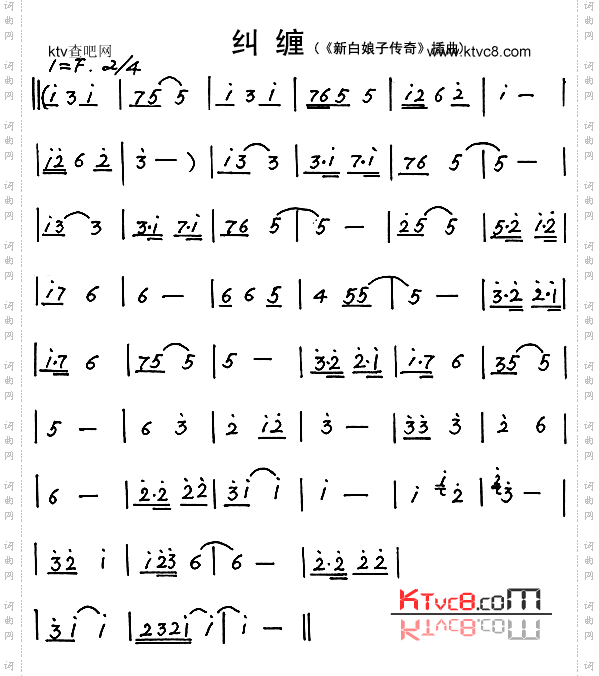 纠 缠 (《新白娘子传奇》插曲)
ktv查吧网 www.ktvc8.com
1=F. 2/4
‖(i̇ 3 i̇ | 75 5 | i̇ 3 i̇ | 7̇655 5 | i̇2̇ 6 2̇ | i̇ — |
| i̇2̇ 6 2̇ | 3̇ — ) | i̇3 3 | 3·i̇ 7·i̇ | 76 5 | 5 — |
| i̇3 3 | 3·i̇ 7·i̇ | 76 5 | 5 — | 2̇5 5 | 5·2̇ i̇·2̇ |
| i̇7 6 | 6 — | 6 6 5 | 4 55 | 5 — | 3̇·2̇ 2̇·i̇ |
| i̇·7 6 | 75 5 | 5 — | 3̇·2̇ 2̇·i̇ | i̇·7 6 | 35 5 |
| 5 — | 6 3̇ | 2̇ i̇2̇ | 3̇ — | 3̇3̇ 3̇ | 2̇ 6 |
| 6 — | 2̇·2̇ 2̇2̇ | 3̇i̇ i̇ | i̇ — | i̇ 2̇ | 3̇ — |
| 3̇2̇ i̇ | i̇2̇3̇ 6 | 6 — | 2̇·2̇ 2̇2̇ |
| 3̇i̇ i̇ | 232i̇ i̇ | i̇ — ‖
KTvc8.com